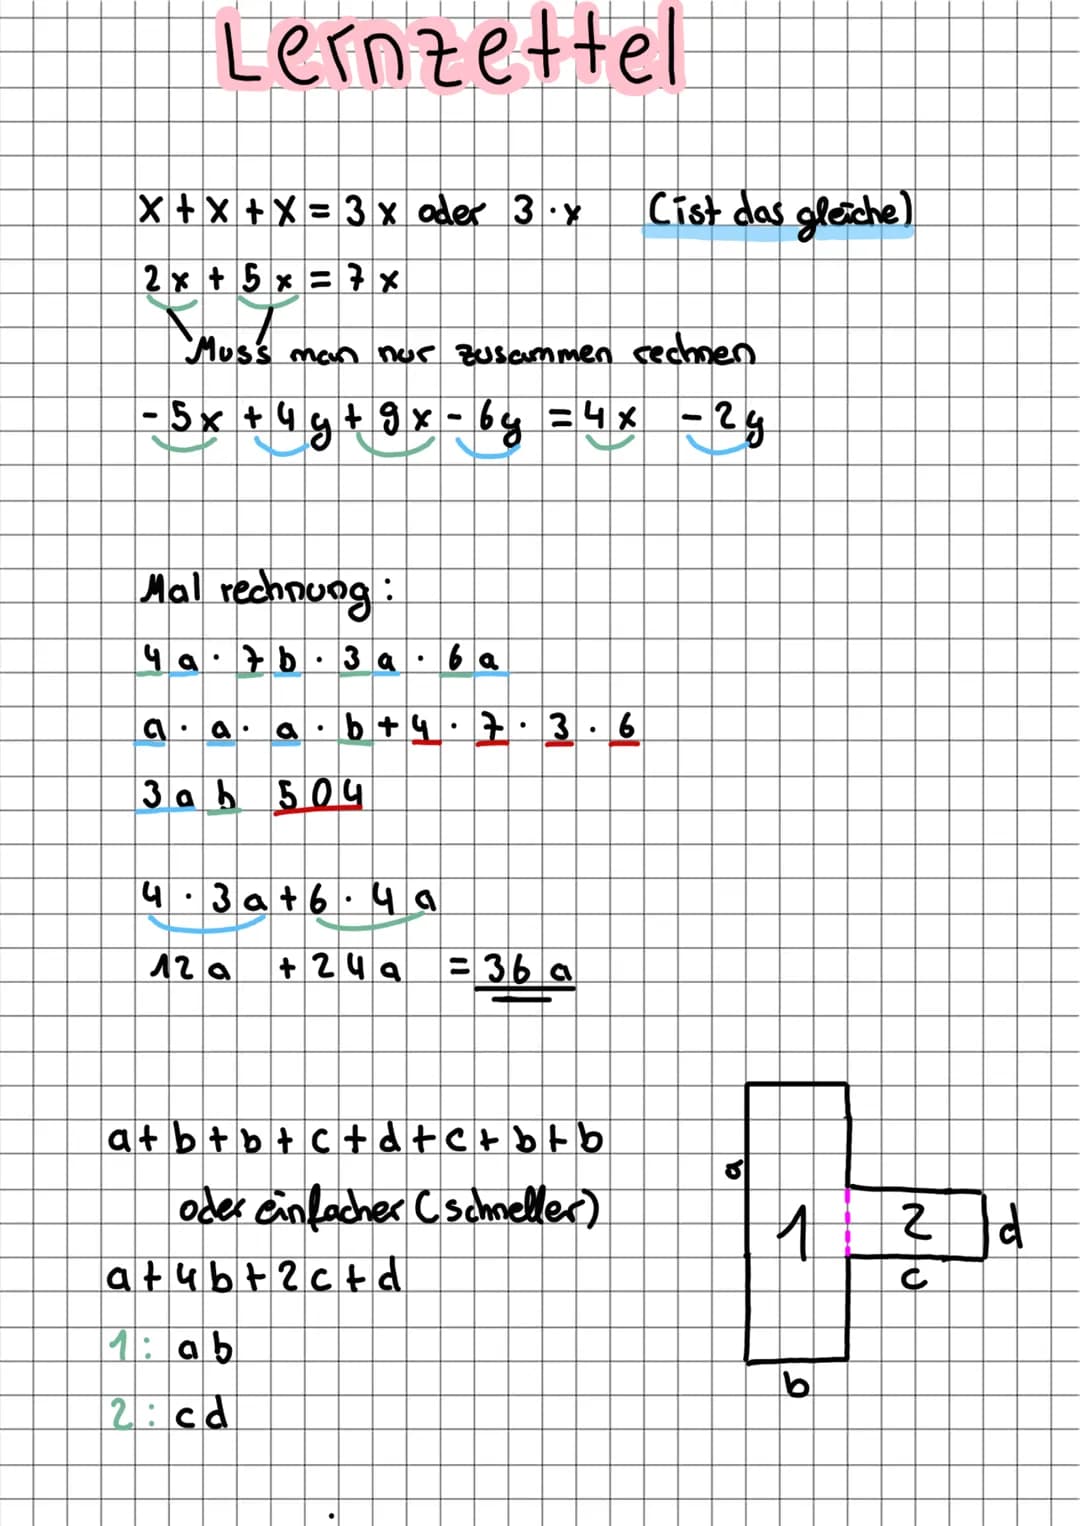 Lernzettel
x + x + x = 3 x oder 3 · x (ist das gleiche)
2 x + 5 x = 7 x
Muss man nur zusammen rechnen
- 5x + 4 y + 9 x - 6y = 4 x - 2 y
Mal rechnung:
4 a · 7 b · 3 a · 6 a
a · a · a · b + 4 · 7 · 3 · 6
3 a b 504
4 · 3 a + 6 · 4 a
12 a + 24 a = 36 a
a + b + b + c + d + c + b + b
oder einfacher (schneller)
a + 4 b + 2 c + d
1: a b
2: c d
a
1
2
d
c
b